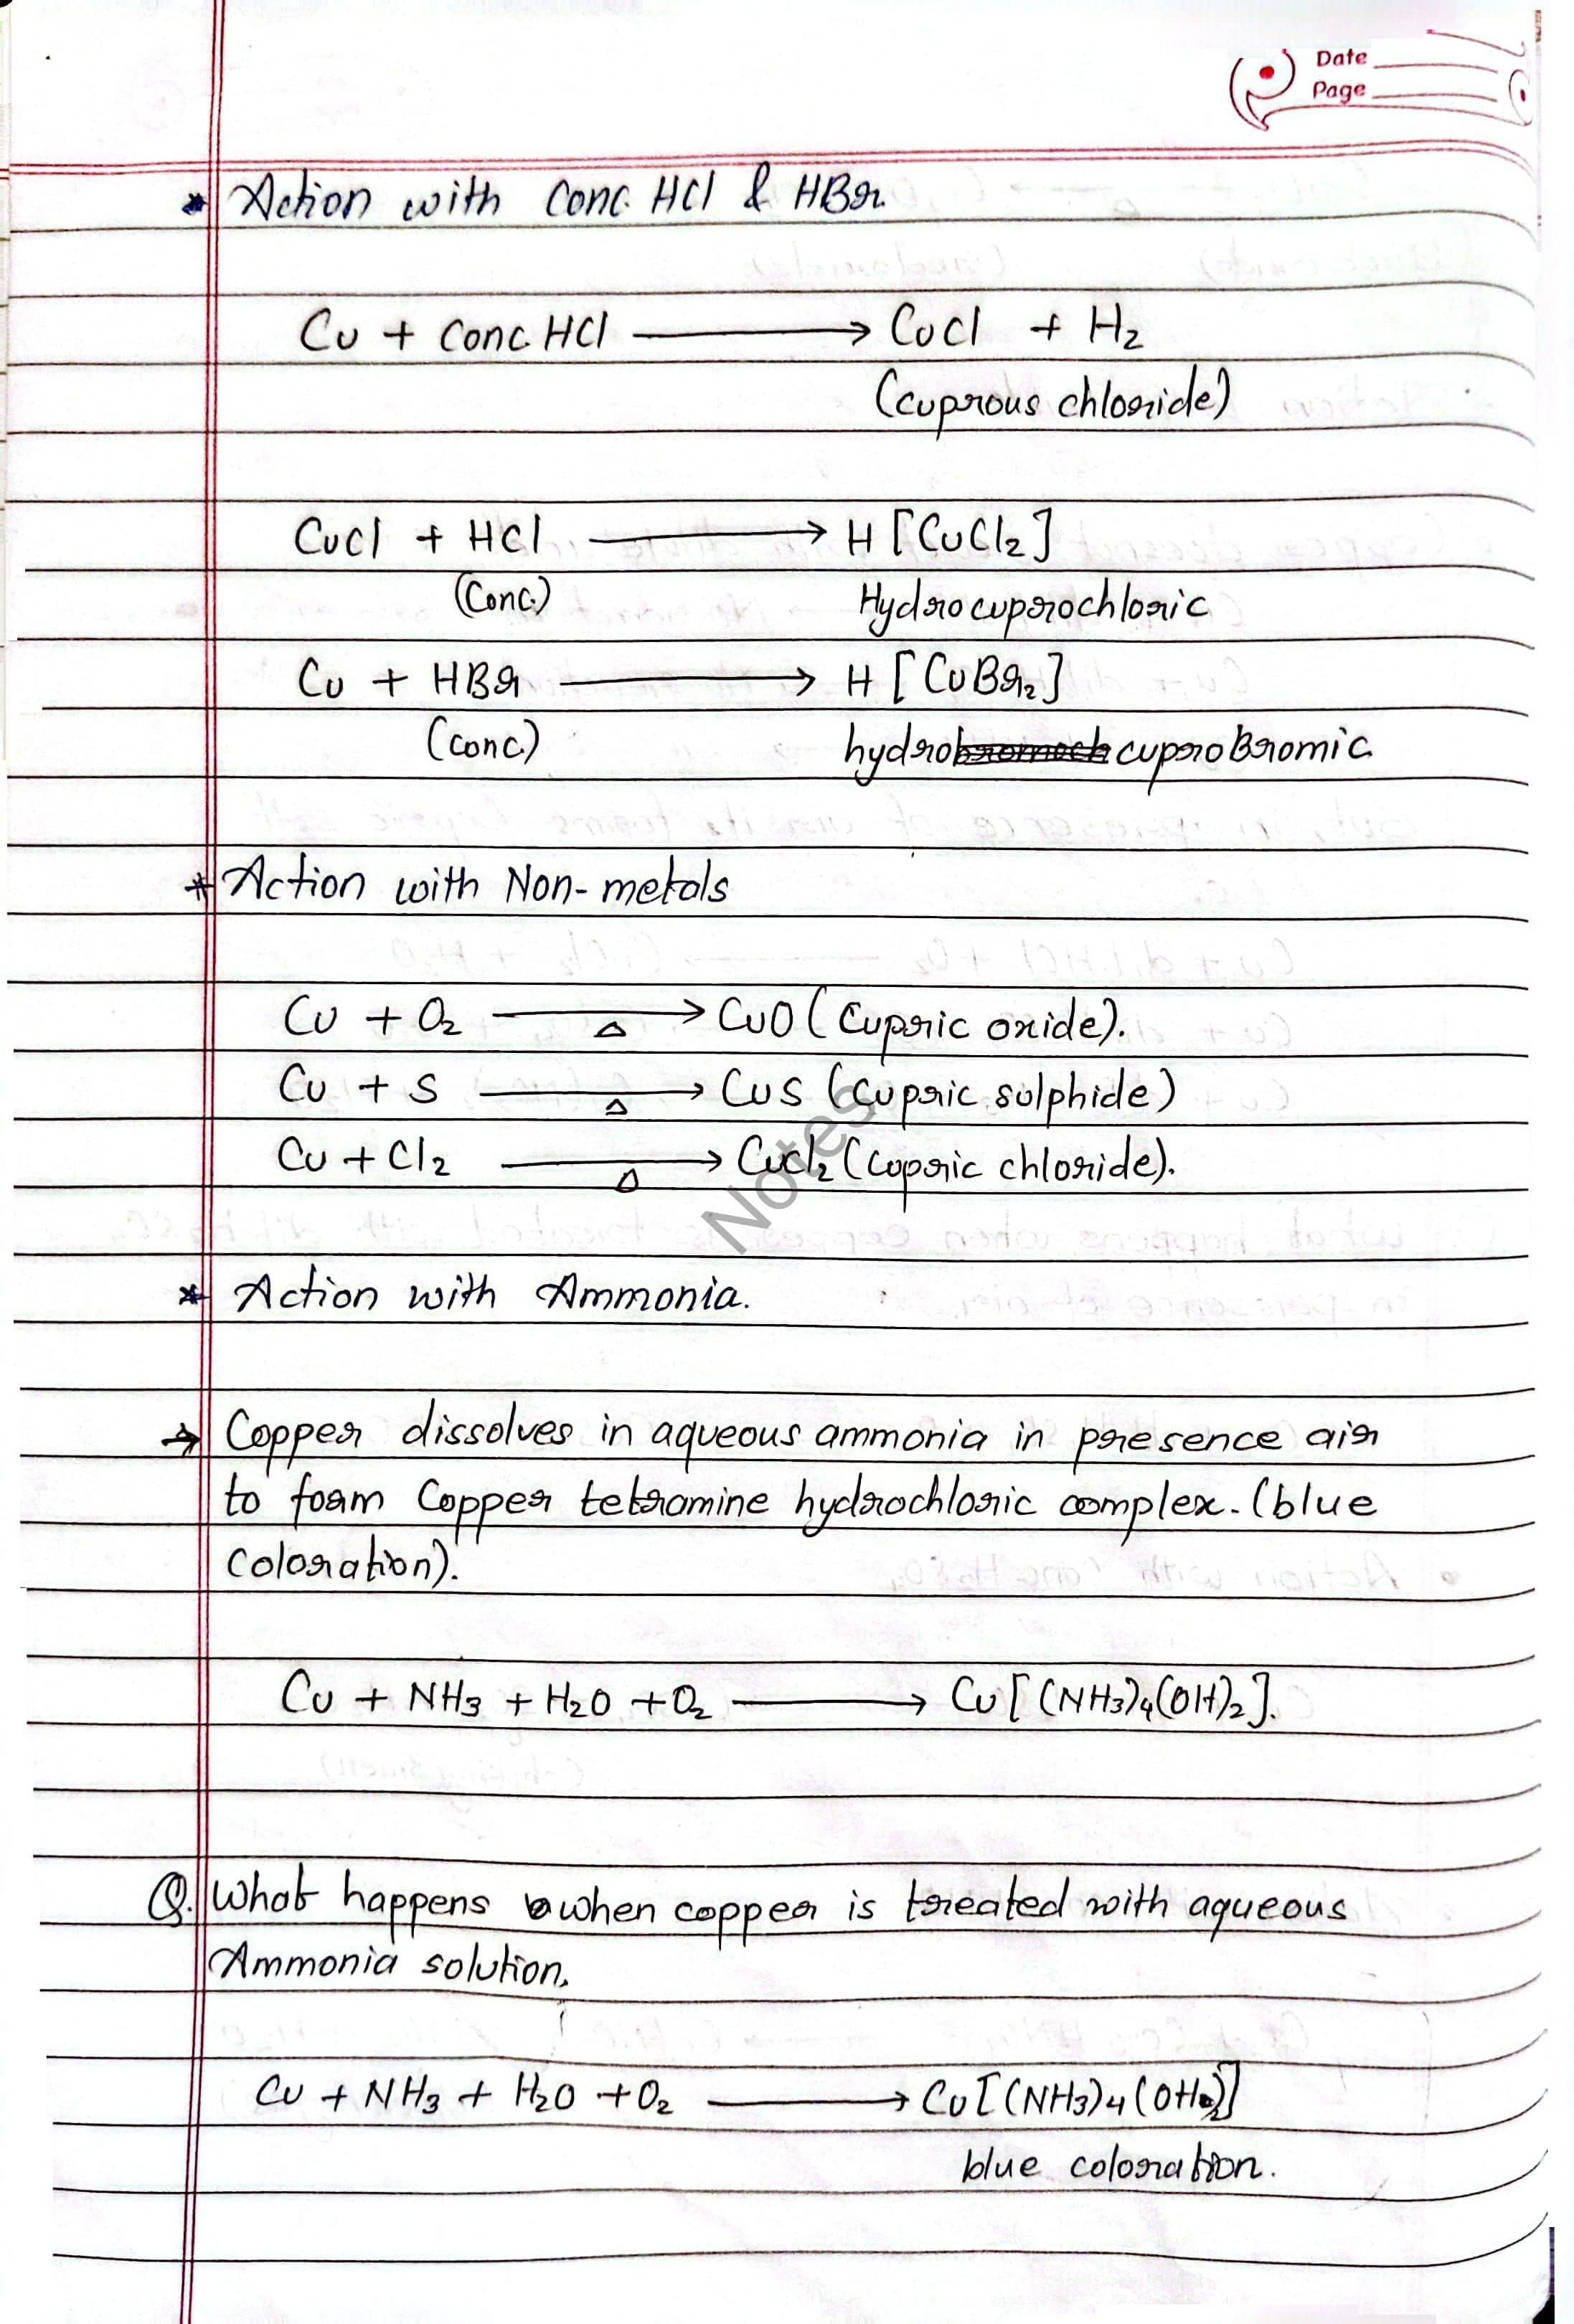 Date
Page
* Action with Conc. HCl & HBr
Cu + Conc. HCl ⟶ CuCl + H2
(cuprous chloride)
CuCl + HCl ⟶ H [CuCl2]
(Conc.) Hydrocuprochloric
Cu + HBr ⟶ H [CuBr2]
(conc.) hydrocuproBromic
* Action with Non-metals
Cu + O2 ⟶ Δ CuO (Cupric oxide).
Cu + S ⟶ Δ CuS (Cupric sulphide)
Cu + Cl2 ⟶ Δ CuCl2 (Cupric chloride).
Notes
* Action with Ammonia.
→ Copper dissolves in aqueous ammonia in presence air
to form Copper tetramine hydrochloric complex. (blue
coloration).
Cu + NH3 + H2O + O2 ⟶ Cu [(NH3)4(OH)2].
Q. What happens when copper is treated with aqueous
Ammonia solution.
Cu + NH3 + H2O + O2 ⟶ Cu[(NH3)4(OH)2]
blue coloration.